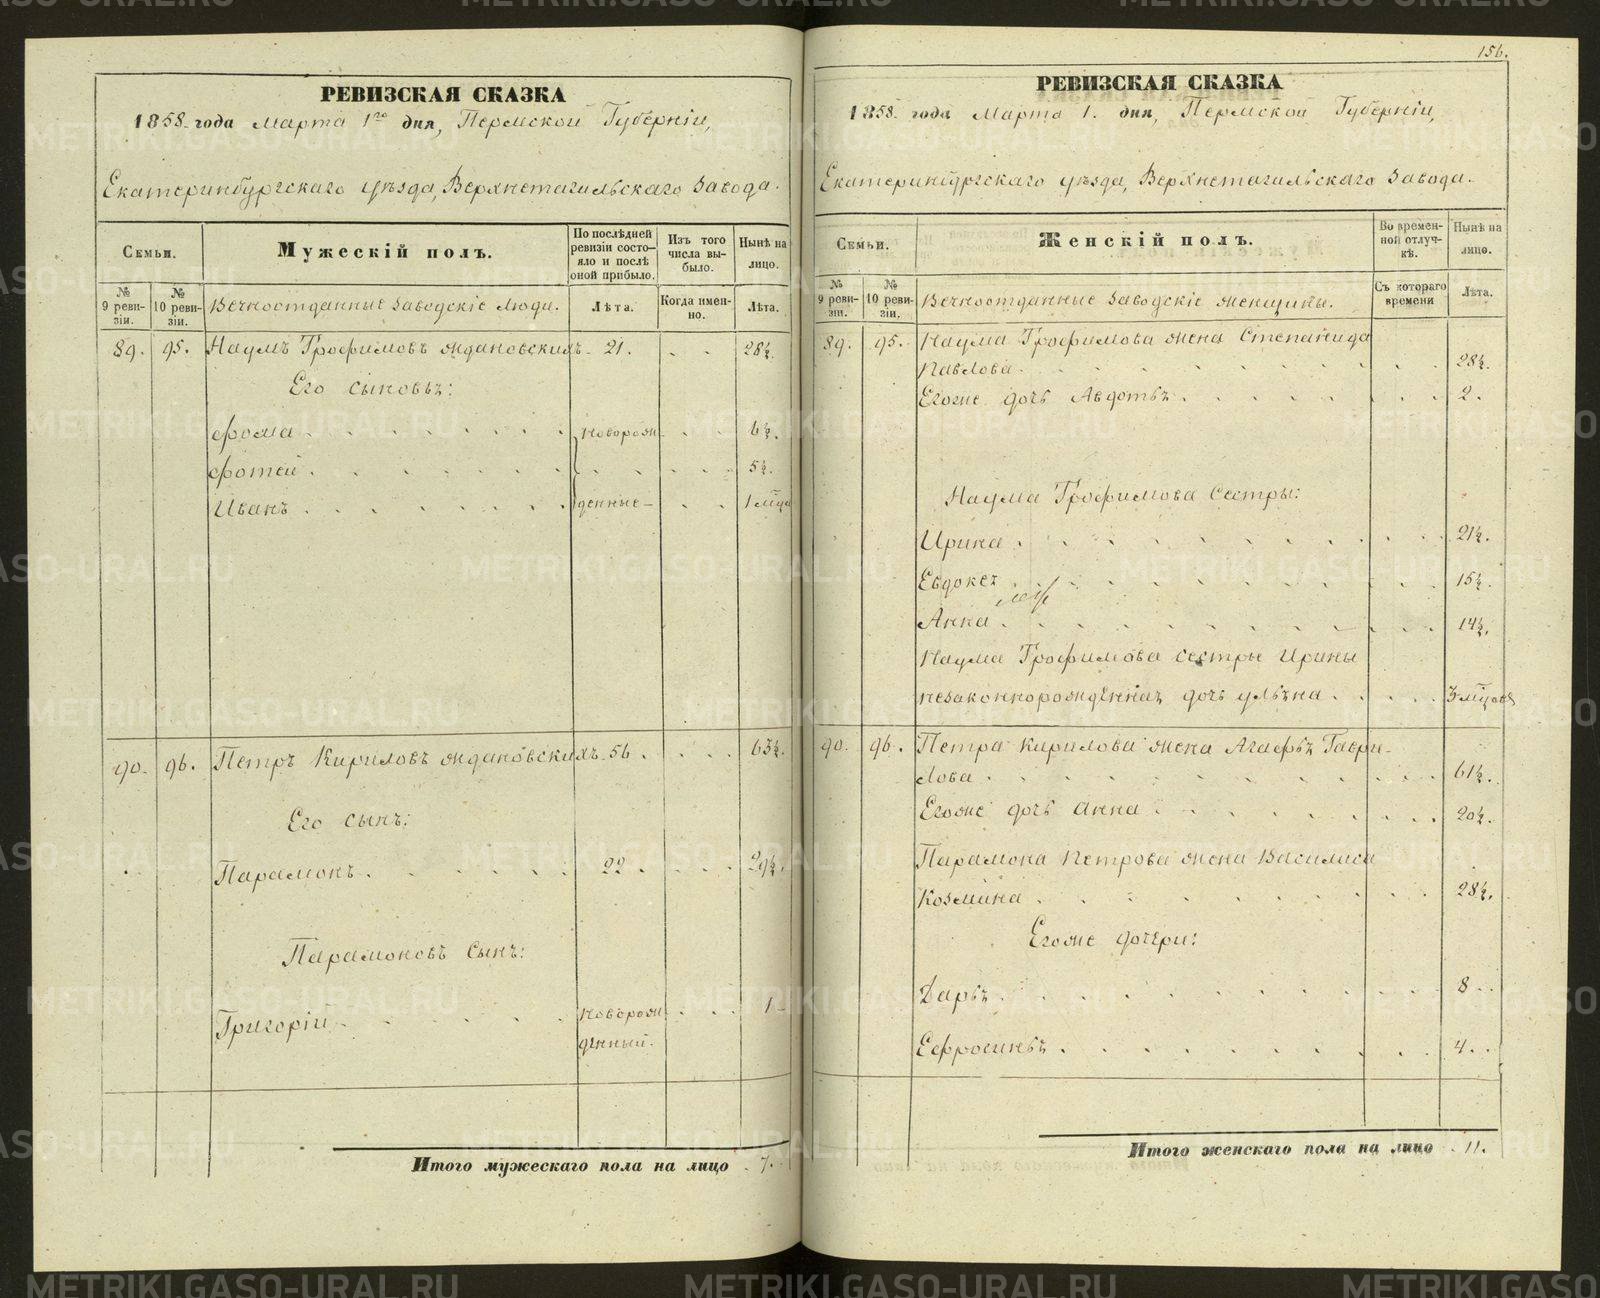 РЕВИЗСКАЯ СКАЗКА
1858 года Марта 1го дня, Пермской Губерніи,
Екатеринбургскаго уѣзда, Верхнетагильскаго Завода.
Семьи.
Мужескій полъ.
По послѣдней ревизіи состояло и послѣ оной прибыло.
Изъ того числа выбыло.
Нынѣ на лицо.
№ 9 ревизіи.
№ 10 ревизіи.
Вечноотданные заводскіе люди.
Лѣта.
Когда именно.
Лѣта.
89. 95. Наумъ Трофимовъ Ждановскихъ 21. 28½.
Его сыновья:
Фома новорож 6½.
Фотей 5½.
Иванъ денные 1 мца
90. 96. Петръ Кириловъ Ждановскихъ 56. 63½.
Его сынъ:
Парамонъ 22. 29½.
Парамоновъ сынъ:
Григорій новорож 1
денный.
Итого мужескаго пола на лицо 7.
156.
РЕВИЗСКАЯ СКАЗКА
1858 года Марта 1. дня, Пермской Губерніи,
Екатеринбургскаго уѣзда, Верхнетагильскаго Завода.
Семьи.
Женскій полъ.
Во временной отлучкѣ.
Нынѣ на лицо.
№ 9 ревизіи.
№ 10 ревизіи.
Вечноотданные заводскіе женщины.
Съ котораго времени
Лѣта.
89. 95. Наума Трофимова жена Степанида
Павлова 28½.
Егоже дочь Авдотья 2.
Наума Трофимова сестры:
Ирина 21½.
Евдокея 15½.
Анна 14½.
Наума Трофимова сестры Ирины
незаконнорожденная дочь Ульяна 3 мцовъ
90. 96. Петра Кирилова жена Агафья Гаври-
лова 61½.
Егоже дочь Анна 20½.
Парамона Петрова жена Василиса
Козмина 28½.
Егоже дочери:
Дарья 8
Ефросинья 4
Итого женскаго пола на лицо 11.
METRIKI.GASO-URAL.RU